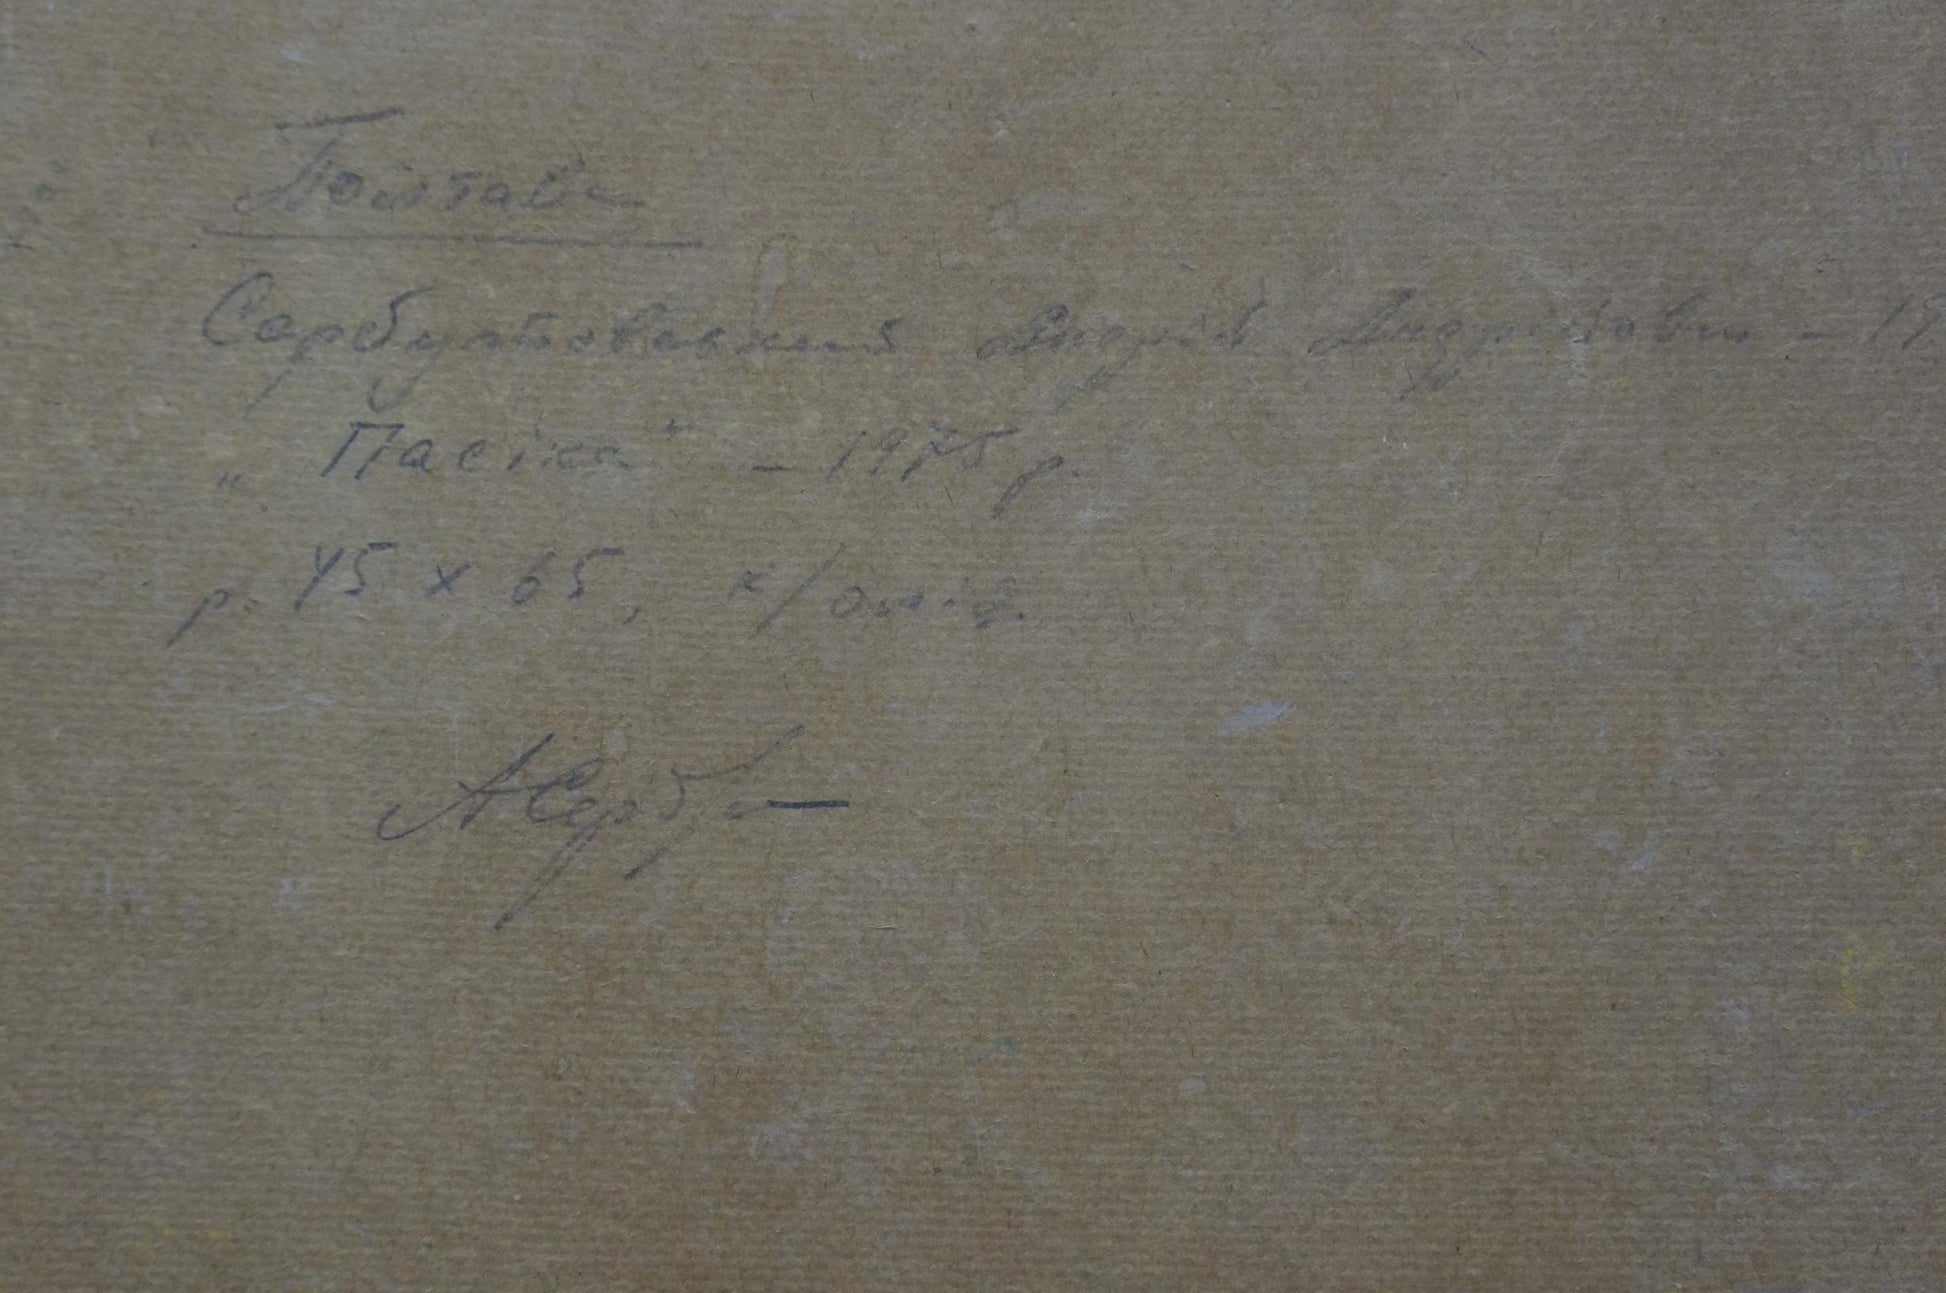 Полтава
Сербутовський Андрій Андрійович - 19
„Пасіка" - 1975 р.
р. 45 х 65, к/олія.
АСерб